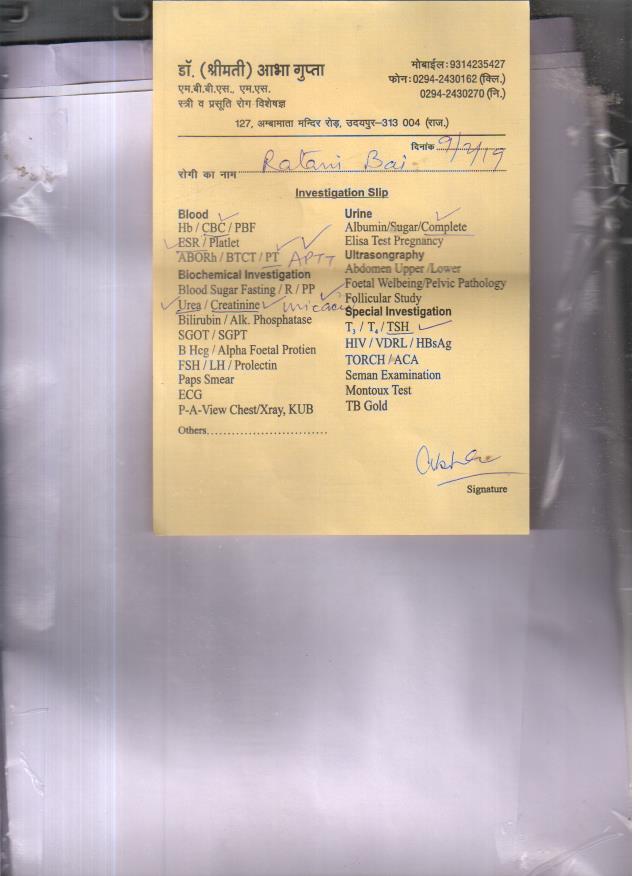 डॉ. (श्रीमती) आभा गुप्ता
एम.बी.बी.एस., एम.एस.
स्त्री व प्रसूति रोग विशेषज्ञ
मोबाईल: 9314235427
फोन: 0294-2430162 (क्लि.)
0294-2430270 (नि.)
127, अम्बामाता मन्दिर रोड़, उदयपुर–313 004 (राज.)
दिनांक 9/2/19
रोगी का नाम Ratani Bai
Investigation Slip
Blood
Hb / CBC / PBF
ESR / Platlet
ABORh / BTCT / PT APTT
Biochemical Investigation
Blood Sugar Fasting / R / PP
Urea / Creatinine
Bilirubin / Alk. Phosphatase
SGOT / SGPT
B Hcg / Alpha Foetal Protien
FSH / LH / Prolectin
Paps Smear
ECG
P-A-View Chest/Xray, KUB
Others
Urine
Albumin/Sugar/Complete
Elisa Test Pregnancy
Ultrasongraphy
Abdomen Upper /Lower
Foetal Welbeing/Pelvic Pathology
Follicular Study
Special Investigation
T3 / T4 / TSH
HIV / VDRL / HBsAg
TORCH / ACA
Seman Examination
Montoux Test
TB Gold
Signature